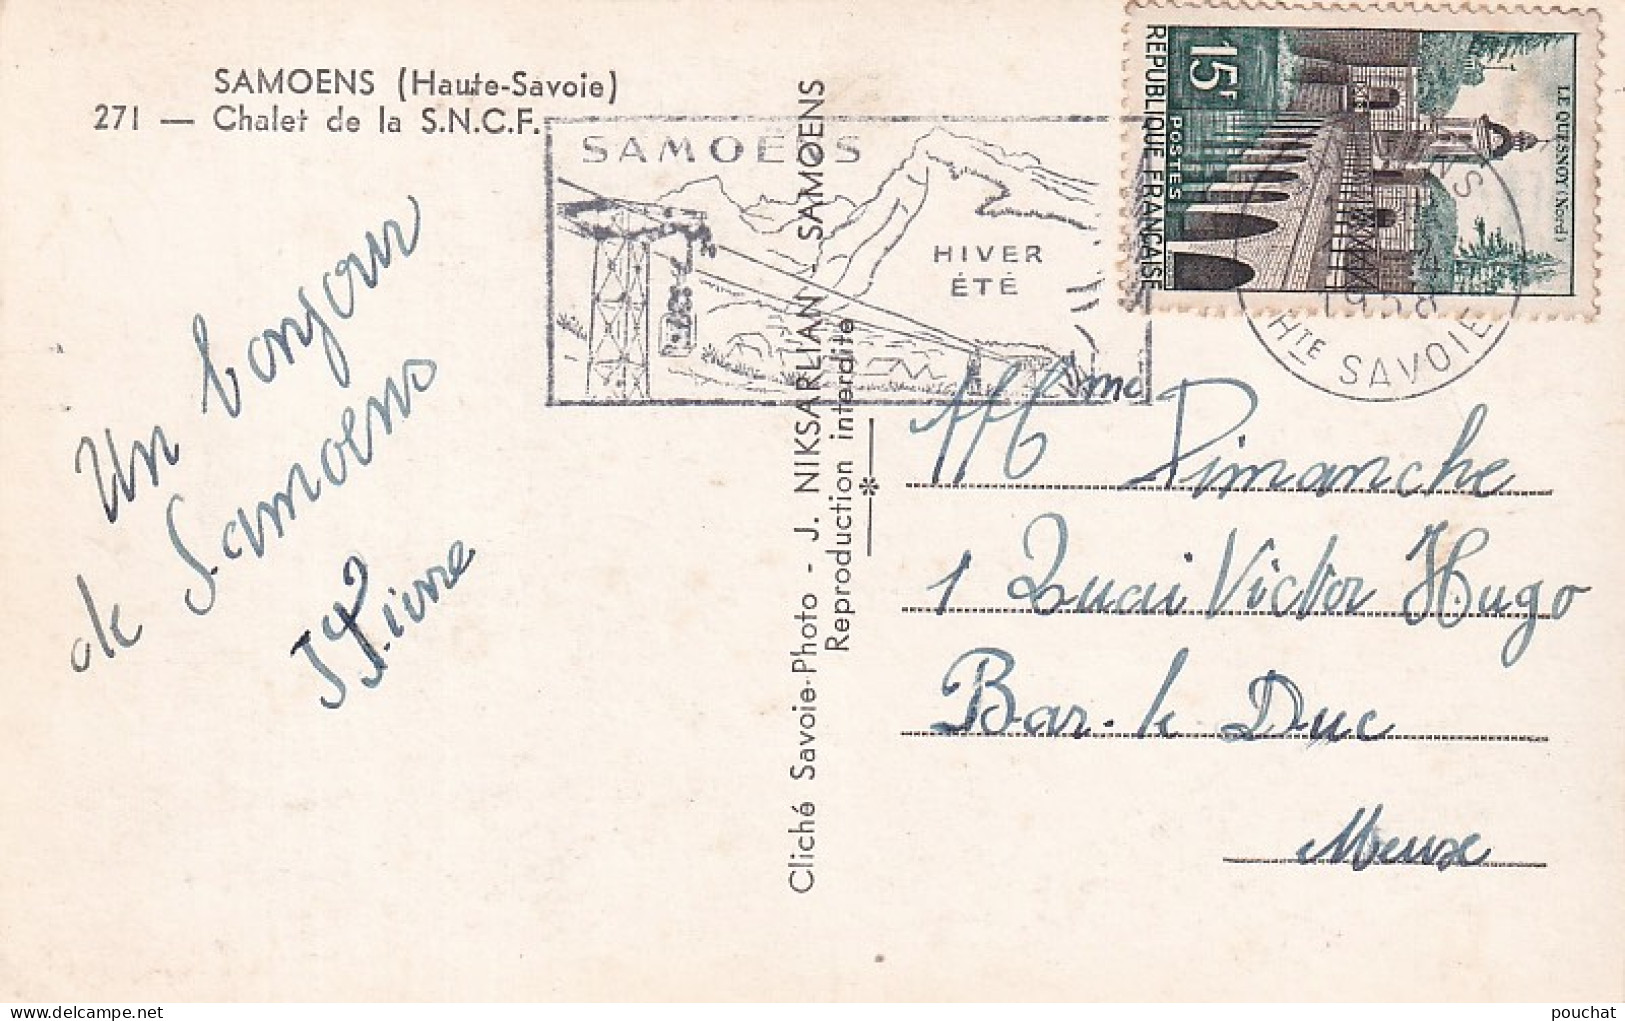 SAMOENS (Haute-Savoie)
271 — Chalet de la S.N.C.F.
SAMOËNS
HIVER
ÉTÉ
REPUBLIQUE FRANÇAISE
15F
POSTES
LE QUESNOY (Nord)
1958
HTE SAVOIE
Un bonjour
de Samoens
Pierre
Cliché Savoie-Photo - J. NIKSARLIAN - SAMOENS
Reproduction interdite
M Mme Dimanche
1 Quai Victor Hugo
Bar-le Duc
Meuse
delcampe.net
pouchat